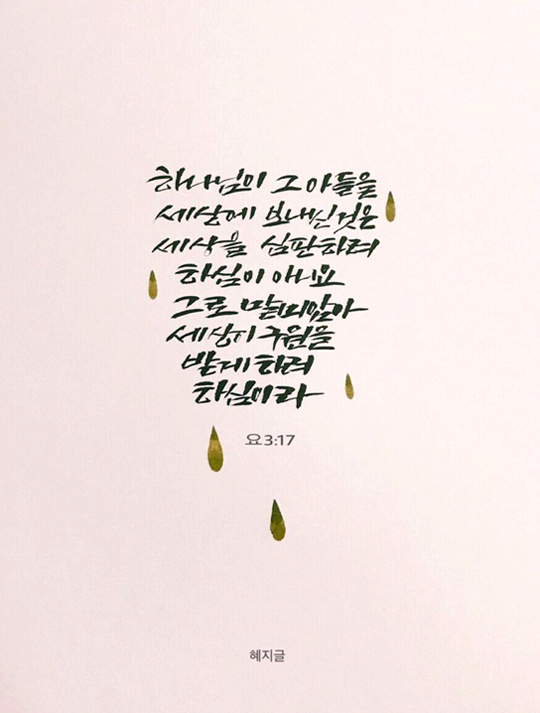 하나님이 그 아들을
세상에 보내신 것은
세상을 심판하려
하심이 아니요
그로 말미암아
세상이 구원을
받게 하려
하심이라
요 3:17
혜지글